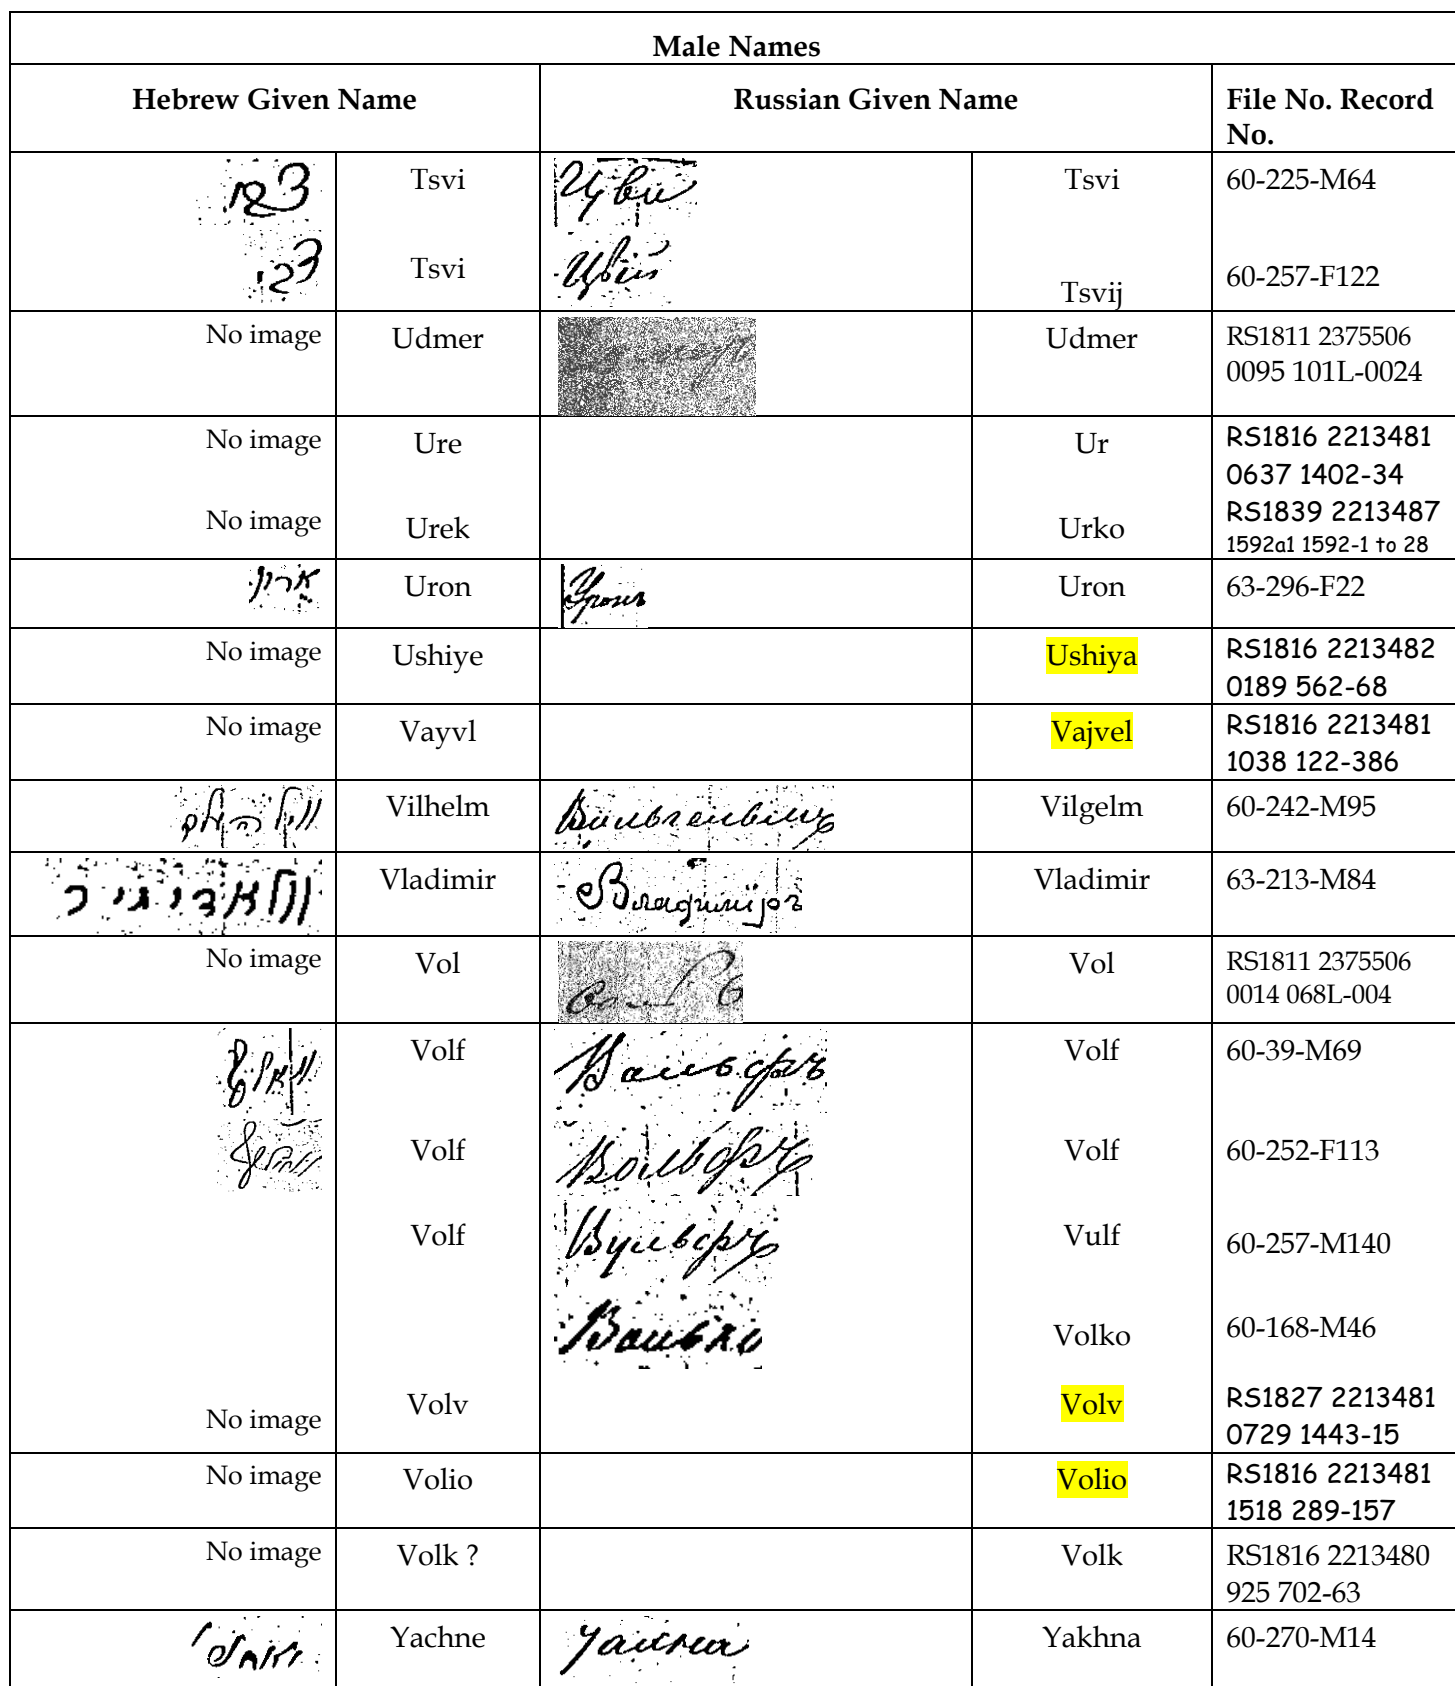 Male Names
Hebrew Given Name Russian Given Name File No. Record No.
צבי Tsvi Цви Tsvi 60-225-M64
צבי Tsvi Цвій Tsvij 60-257-F122
No image Udmer Udmer RS1811 2375506
0095 101L-0024
No image Ure Ur RS1816 2213481
0637 1402-34
No image Urek Urko RS1839 2213487
1592a1 1592-1 to 28
ארון Uron Уронъ Uron 63-296-F22
No image Ushiye Ushiya RS1816 2213482
0189 562-68
No image Vayvl Vajvel RS1816 2213481
1038 122-386
Vilhelm Vilgelm 60-242-M95
Vladimir Vladimir 63-213-M84
No image Vol Vol RS1811 2375506
0014 068L-004
Volf Вольфъ Volf 60-39-M69
Volf Вольфъ Volf 60-252-F113
Volf Вульфъ Vulf 60-257-M140
Волько Volko 60-168-M46
No image Volv Volv RS1827 2213481
0729 1443-15
No image Volio Volio RS1816 2213481
1518 289-157
No image Volk ? Volk RS1816 2213480
925 702-63
Yachne Yakhna 60-270-M14